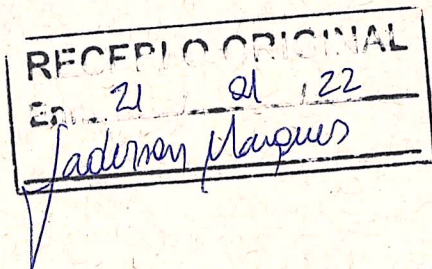 RECEBI O ORIGINAL
Em 21 / 01 / 22
Jaderson Marques